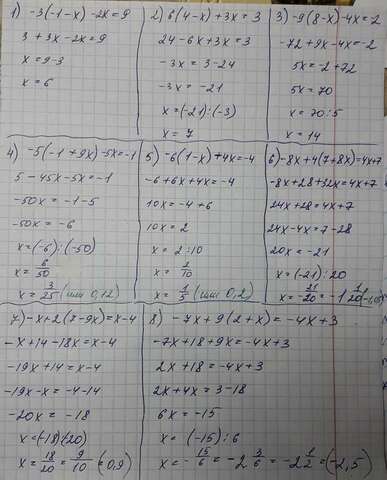 1) -3(-1-x)-2x=9
3+3x-2x=9
x=9-3
x=6
2) 6(4-x)+3x=3
24-6x+3x=3
-3x=3-24
-3x=-21
x=(-21):(-3)
x=7
3) -9(8-x)-4x=-2
-72+9x-4x=-2
5x=-2+72
5x=70
x=70:5
x=14
4) -5(-1+9x)-5x=-1
5-45x-5x=-1
-50x=-1-5
-50x=-6
x=(-6):(-50)
x=6/50
x=3/25 (или 0,12)
5) -6(1-x)+4x=-4
-6+6x+4x=-4
10x=-4+6
10x=2
x=2:10
x=2/10
x=1/5 (или 0,2)
6) -8x+4(7+8x)=4x+7
-8x+28+32x=4x+7
24x+28=4x+7
24x-4x=7-28
20x=-21
x=(-21):20
x=-21/20=-1 1/20
7) -x+2(7-9x)=x-4
-x+14-18x=x-4
-19x+14=x-4
-19x-x=-4-14
-20x=-18
x=(-18):(20)
x=18/20=9/10=(0,9)
8) -7x+9(2+x)=-4x+3
-7x+18+9x=-4x+3
2x+18=-4x+3
2x+4x=3-18
6x=-15
x=(-15):6
x=-15/6=-2 3/6=-2 1/2=(-2,5)